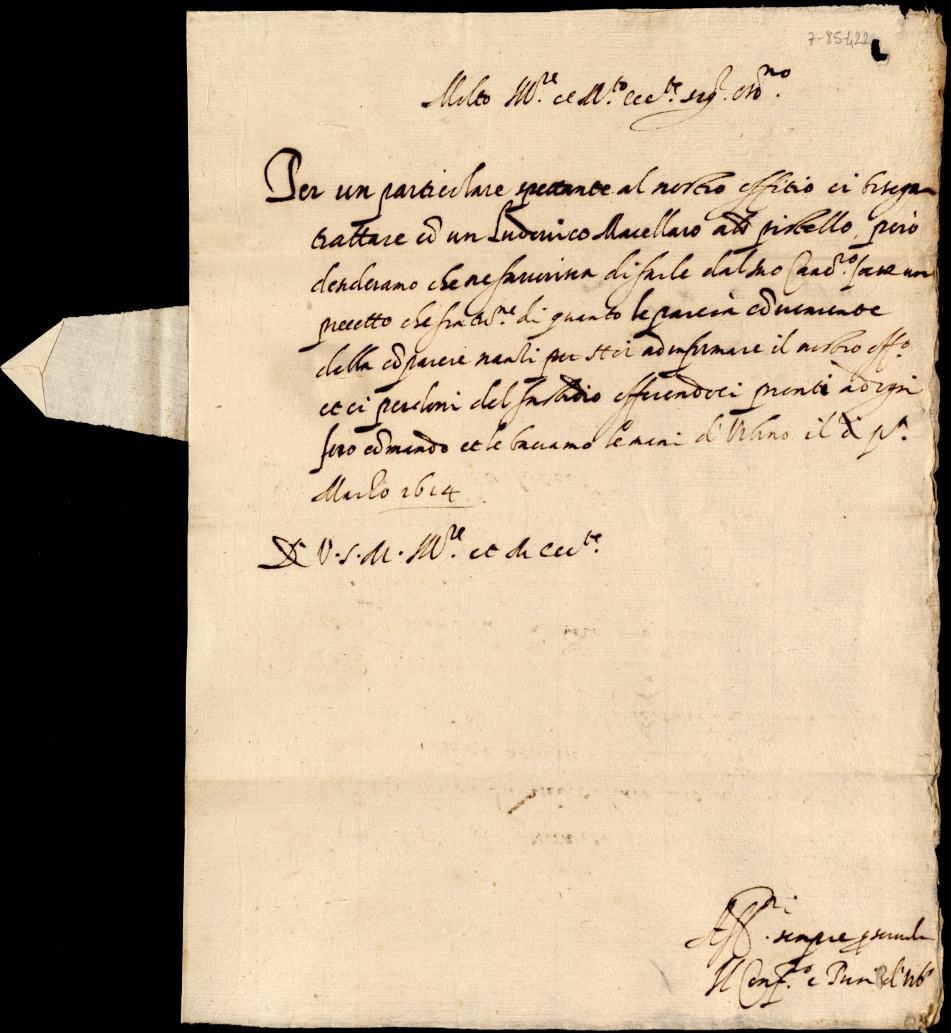 7-85422
Molto Ill.re et M.to ecc.te sig.r oss.mo
Per un particulare spettante al nostro offitio ci bisogna
trattare cõ un Ludovico Macellaro al piobello, però
desideramo che ne favorisca di farle dal suo Canc.ro fare un
precetto che fra ter.ne di quanto le parerà cõveniente
debba cõparere nanti per ad informare il nostro off.o
et ci perdoni del fastidio offerendoci pronti ad ogni
suo comando et le baciamo le mani d'Urbino il dì p.o
Marzo 1614
Di V. S. M. Ill.re et di ecc.te
Aff.mi sempre p servirla
Il Conf.o e Priori d'Urb.o